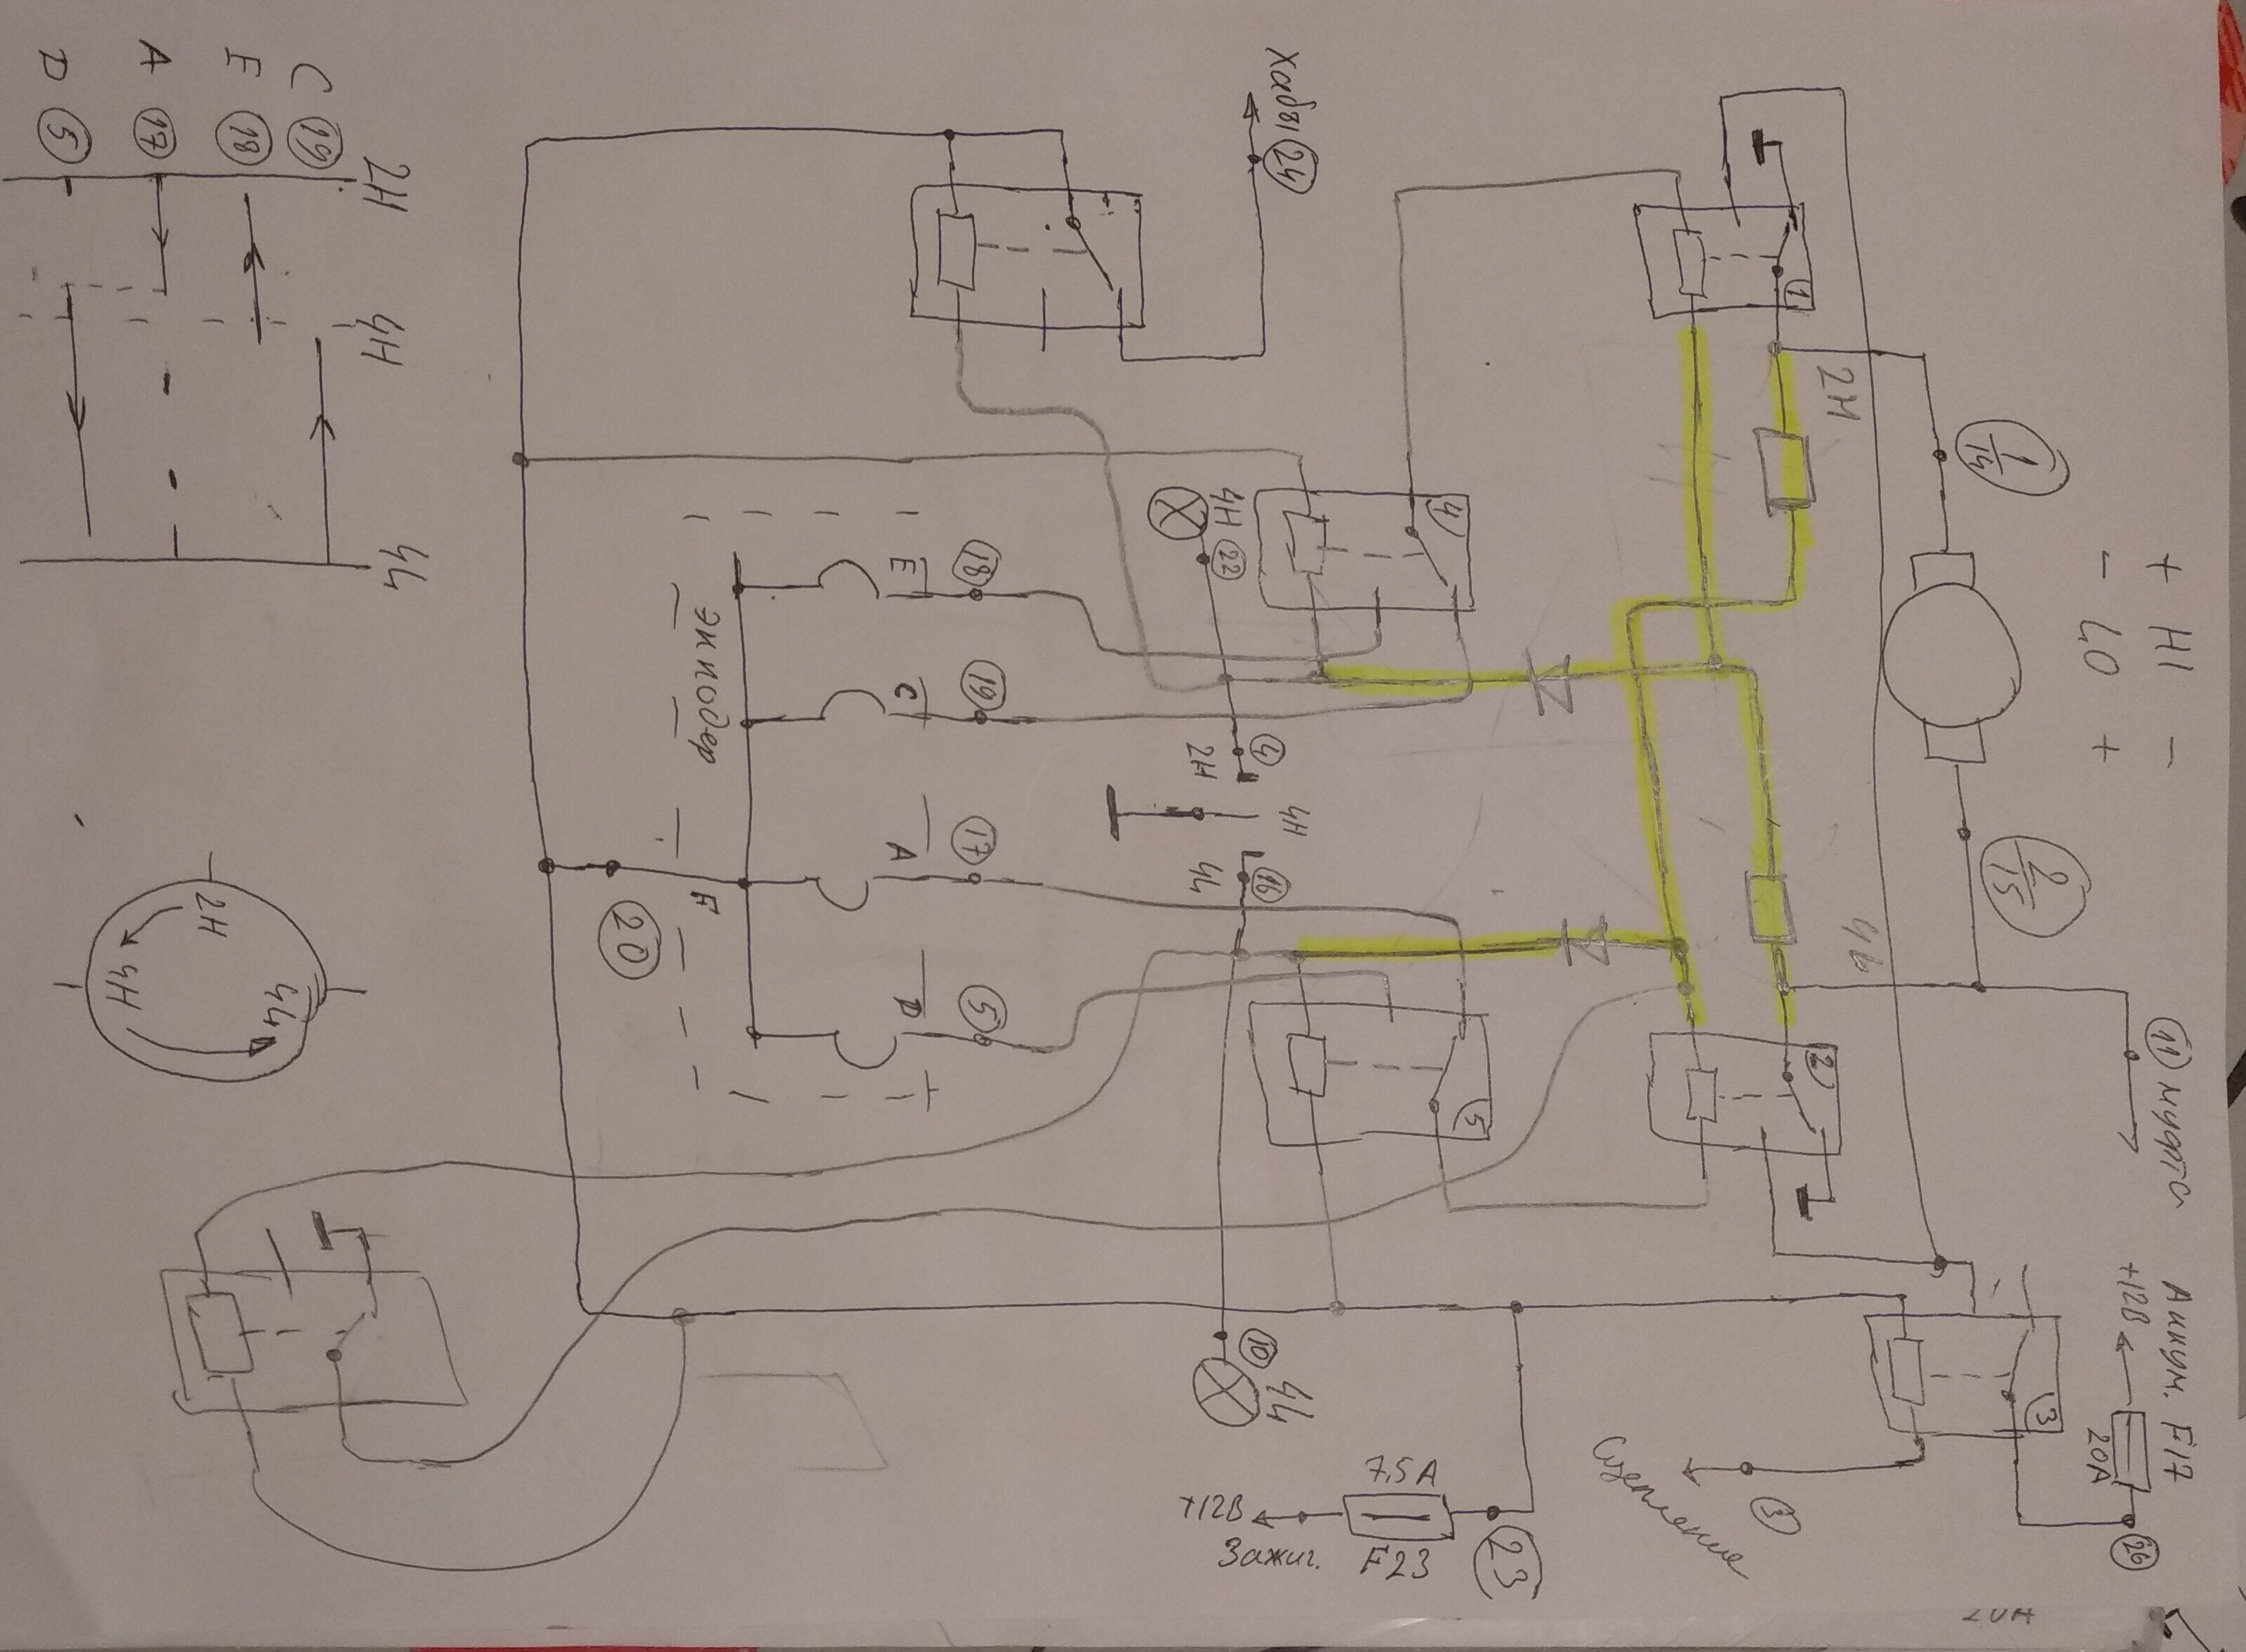 + HI -
- LO +
1/14
2/15
2H
4L
11 муфта
Аккум. F17
+12В
20А
26
1
2
3
3
Сцепление
Хабы 24
4
4H 22
5
4
2H
4H
4L 16
10 4L
7,5А
+12В
F23
Зажиг.
23
E 18
C 19
A 17
D 5
F
20
энкодер
2H 4H 4L
C 19
E 18
A 17
D 5
2H
4H
4L
20А